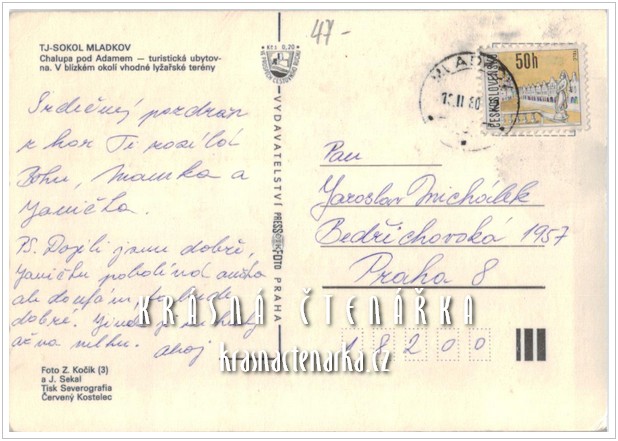 47-
TJ-SOKOL MLADKOV
Chalupa pod Adamem — turistická ubytov-
na. V blízkém okolí vhodné lyžařské terény
Kčs 0,20
50h
ČESKOSLOVENSKO
MLADKOV
VYDAVATELSTVÍ PRESSFOTO PRAHA
Srdečný pozdrav
z hor Ti posílá
Bohu, Mamka a
Janička.
PS. Dojeli jsme dobře,
Janičku pobolívá
ale doufám, bude
dobré. Jinak
ahoj
Pan
Jaroslav Michálek
Bedřichovská 1957
Praha 8
18200
KRÁSNÁ ČTENÁŘKA
krasnactenarka.cz
Foto Z. Kočík (3)
a J. Sekal
Tisk Severografia
Červený Kostelec